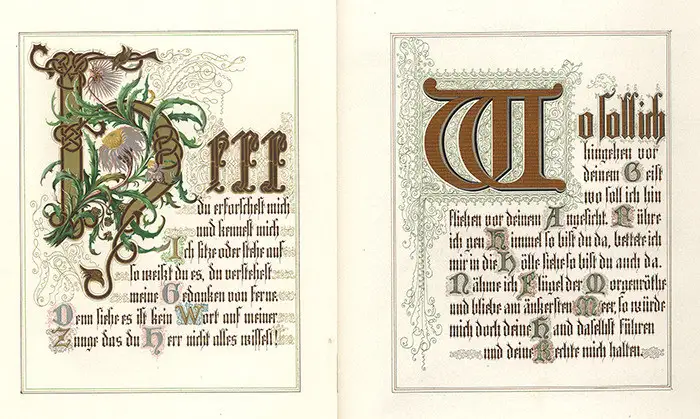 HERR
du erforschest mich
und kennest mich
Ich sitze oder stehe auf
so weißt du es, du verstehest
meine Gedanken von ferne.
Denn siehe es ist kein Wort auf meiner
Zunge das du Herr nicht alles wissest!
Wo soll ich
hingehen vor
deinem Geist
wo soll ich hin
fliehen vor deinem Angesicht. Führe
ich gen Himmel so bist du da, bettete ich
mir in die Hölle siehe so bist du auch da.
Nähme ich Flügel der Morgenröthe
und bliebe am äußersten Meer, so würde
mich doch deine Hand daselbst führen
und deine Rechte mich halten.